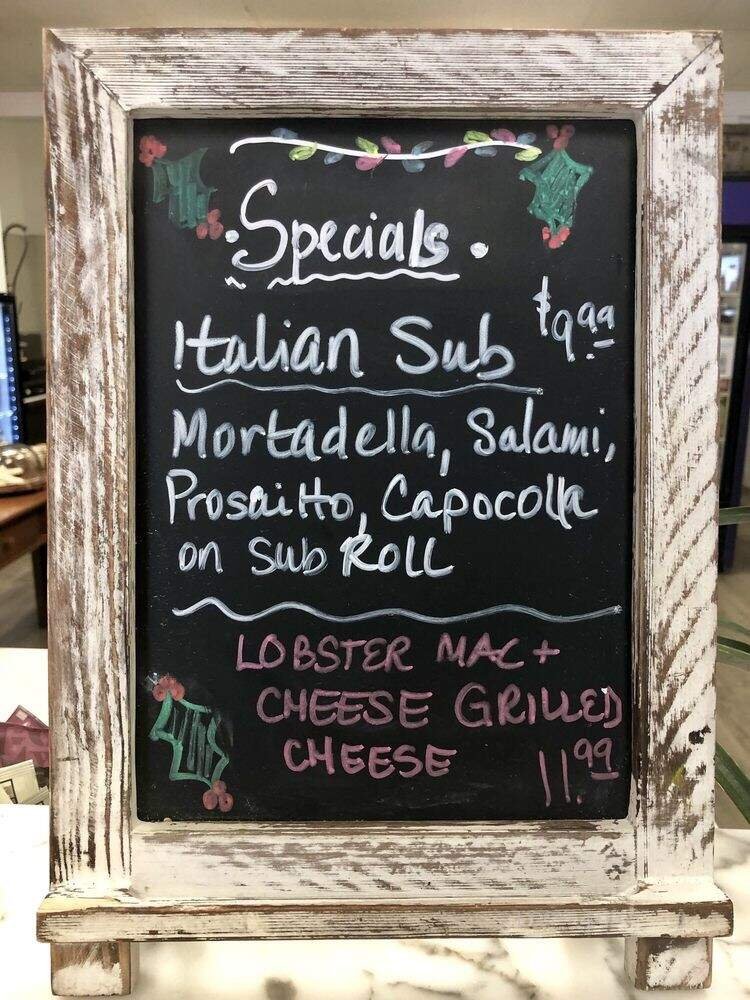 ·Specials·
Italian Sub $9.99
Mortadella, Salami,
Prosaitto, Capocolla
on Sub ROLL
LOBSTER MAC +
CHEESE GRILLED
CHEESE 11.99